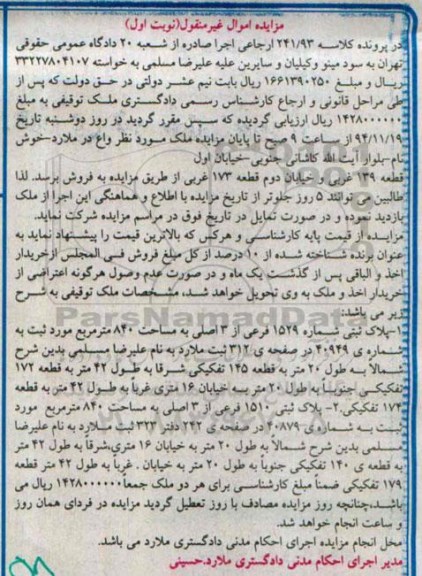 مزایده اموال غیرمنقول(نوبت اول)
در پرونده کلاسه ۲۴۱/۹۳ ارجاعی اجرا صادره از شعبه ۲۰ دادگاه عمومی حقوقی
تهران به سود مینو وکیلیان و سایرین علیه علیرضا مسلمی به خواسته ۳۳۲۲۷۸۰۴۱۰۷
ریـال و مبلـغ ۱۶۶۱۳۹۰۲۵۰ ریال بابت نیم عشـر دولتی در حق دولت که پس از
طی مراحل قانونی و ارجاع کارشناس رسمی دادگستری ملـک توقیفی به مبلغ
۱۴۲۸۰۰۰۰۰۰ ریال ارزیابی گردیده که سـپس مقرر گردید در روز دوشنبه تاریخ
۹۴/۱۱/۱۹ از سـاعت ۹ صبح تا پایان مزایده ملک مـورد نظر واع در ملارد-خوش
نام-بلـوار آیت الله کاشـانی جنوبی -خیابان اول
قطعه ۱۳۹ غربی و خیابان دوم قطعه ۱۷۳ غربی از طریق مزایده به فروش برسد. لذا
طالبین می توانند ۵ روز جلوتر از تاریخ مزایده با اطلاع و هماهنگی این اجرا از ملک
بازدید نموده و در صورت تمایل در تاریخ فوق در مراسم مزایده شرکت نماید.
مزایـده از قیمت پایه کارشناسی و هرکس که بالاترین قیمت را پیشنهاد نماید به
عنوان برنده شـناخته شـده از ۱۰ درصد از کل مبلغ فروش فـی المجلس ازخریدار
اخذ و الباقی پس از گذشـت یک ماه و در صورت عدم وصول هرگونه اعتراضی از
خریدار اخذ و ملک به وی تحویل خواهد شـد، مشـخصات ملک توقیفی به شـرح
زیر می باشد:
۱-پلاک ثبتی شـماره ۱۵۲۹ فرعی از ۳ اصلی به مساحت ۸۴۰ مترمربع مورد ثبت به
شماره ی ۴۰۹۴۹ در صفحه ی ۳۱۲ ثبت ملارد به نام علیرضا مسـلمی بدین شرح
شمالا بـه طول ۲۰ متر به قطعه ۱۴۵ تفکیکی شـرقا به طول ۴۲ متر به قطعه ۱۷۲
تفکیکـی جنوبـاً به طول ۲۰ متر بـه خیابان ۱۶ متری غرباً به طـول ۴۲ متر به قطعه
۱۷۴ تفکیکی.۲- پلاک ثبتی ۱۵۱۰ فرعی از ۳ اصلی به مساحت ۸۴۰ مترمربع مورد
ثبت به شـماره ی ۴۰۸۷۹ در صفحه ی ۲۴۲ دفتر ۳۲۳ ثبت ملارد به نام علیرضا
مسـلمی بدین شـرح شـمالاً به طول ۲۰ متر به خیابان ۱۶ متری،شرقاً به طول ۴۲ متر
به قطعه ی ۱۴۰ تفکیکی جنوباً به طول ۲۰ متر به خیابان . غرباً به طول ۴۲ متر قطعه
۱۷۹ تفکیکی ضمناً مبلغ کارشناسی برای هر دو ملک جمعاً ۱۴۲۸۰۰۰۰۰۰۰ ریال می
باشـد،چنانچه روز مزایده مصادف با روز تعطیل گردید مزایده در فردای همان روز
و ساعت انجام خواهد شد.
محل انجام مزایده اجرای احکام مدنی دادگستری ملارد می باشد.
مدیر اجرای احکام مدنی دادگستری ملارد.حسینی
ParsNamadData